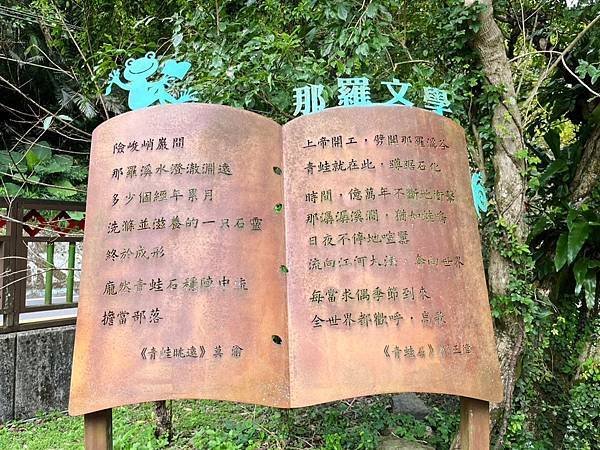 那羅文學
險峻峭巖間
那羅溪水澄澈淵遠
多少個經年累月
洗滌並滋養的一只石靈
終於成形
龐然青蛙石穩陣中流
擔當部落
《青蛙眺遠》莫渝
上帝開工，劈開那羅溪谷
青蛙就在此，蹲踞石化
時間，億萬年不斷地衝擊
那潺潺溪澗，猶如蛙鳴
日夜不停地喧囂
流向江河大海 向世界
每當求偶季節到來
全世界都歡呼，高歌
《青蛙石》